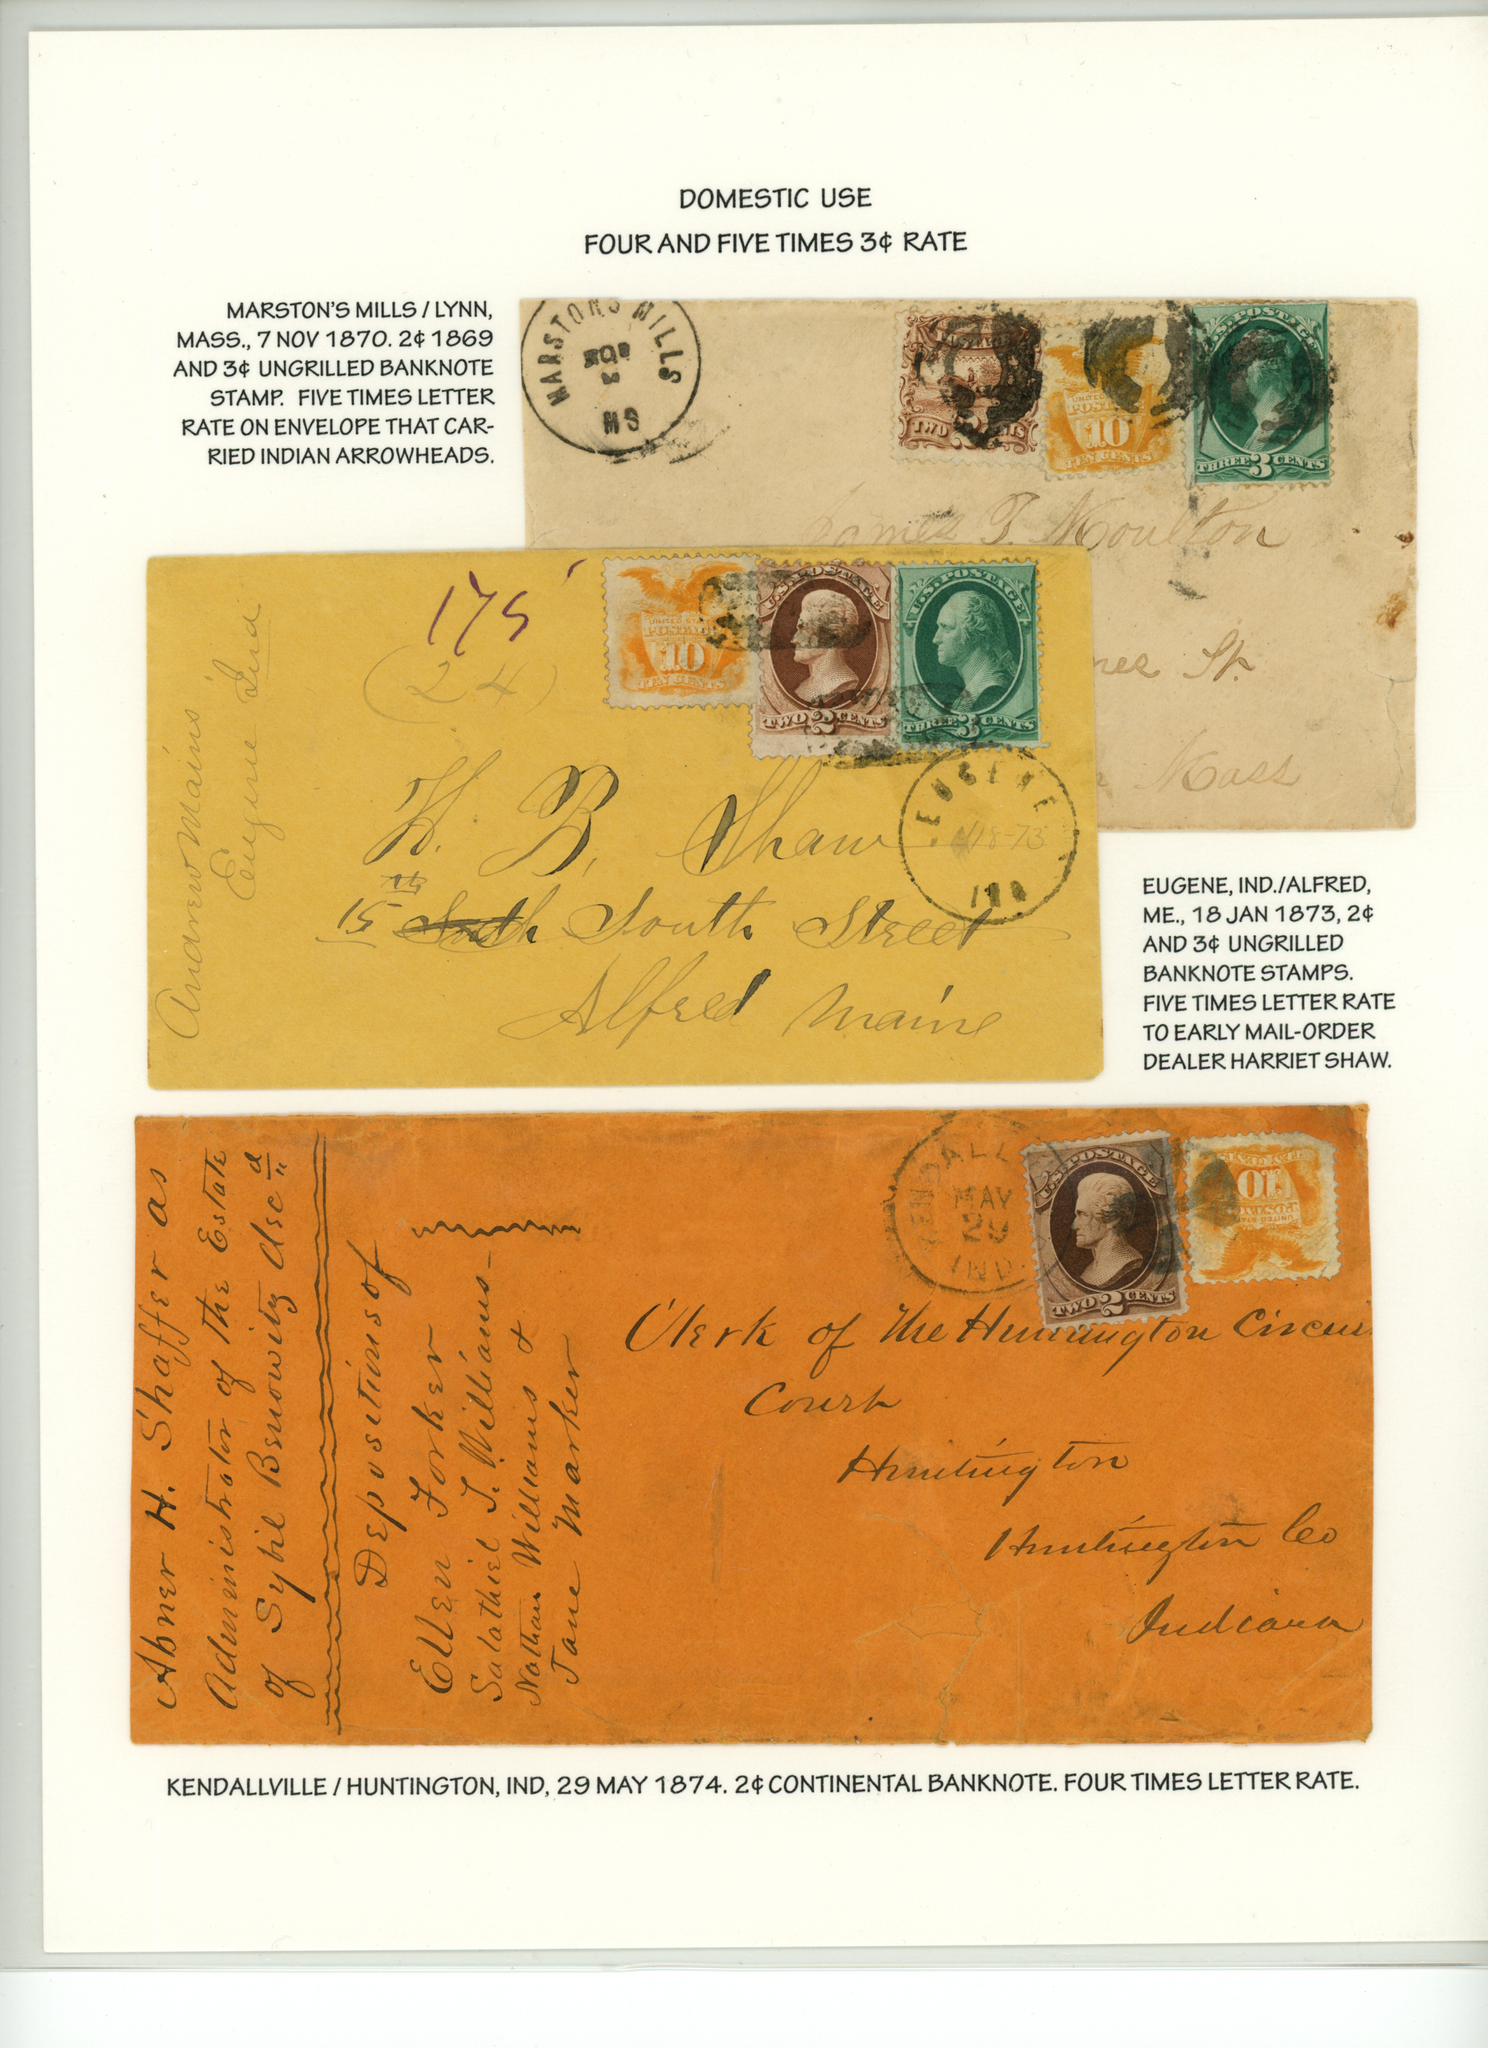 DOMESTIC USE
FOUR AND FIVE TIMES 3¢ RATE
MARSTON'S MILLS / LYNN,
MASS., 7 NOV 1870. 2¢ 1869
AND 3¢ UNGRILLED BANKNOTE
STAMP. FIVE TIMES LETTER
RATE ON ENVELOPE THAT CAR-
RIED INDIAN ARROWHEADS.
MARSTONS MILLS
NOV
MS
TWO 2 CENTS
UNITED STATES
POSTAGE
10
TEN CENTS
U.S. POSTAGE
THREE 3 CENTS
James T. Moulton
St.
Mass
175
(24)
Andrew Mains
Eugene Ind
UNITED STATES
POSTAGE
10
TEN CENTS
U.S. POSTAGE
TWO 2 CENTS
U.S. POSTAGE
THREE 3 CENTS
EUGENE
18-73
IND
H. B. Shaw
15th South Street
Alfred Maine
EUGENE, IND./ALFRED,
ME., 18 JAN 1873, 2¢
AND 3¢ UNGRILLED
BANKNOTE STAMPS.
FIVE TIMES LETTER RATE
TO EARLY MAIL-ORDER
DEALER HARRIET SHAW.
Abner H. Shaffer as
Administrator of the Estate
of Sybil Benowitz decd
Depositions of
Ellen Forker
Salathiel T. Williams-
Nathan Williams &
Jane Marker
KENDALL
MAY
29
IND
U.S. POSTAGE
TWO 2 CENTS
TEN CENTS
10
POSTAGE
UNITED STATES
Clerk of the Huntington Circuit
Court
Huntington
Huntington Co
Indiana
KENDALLVILLE / HUNTINGTON, IND, 29 MAY 1874. 2¢ CONTINENTAL BANKNOTE. FOUR TIMES LETTER RATE.